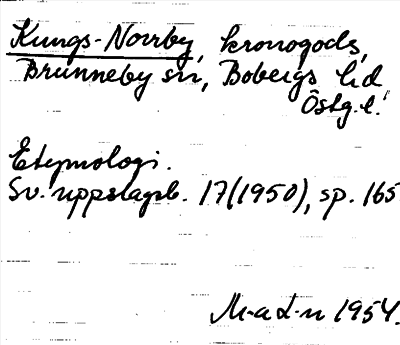 Kungs-Norrby, kronogods,
Brunneby sn, Bobergs hd
Östg.l.
Etymologi.
Sv. uppslagsb. 17(1950), sp. 165
M-a L-n 1954.